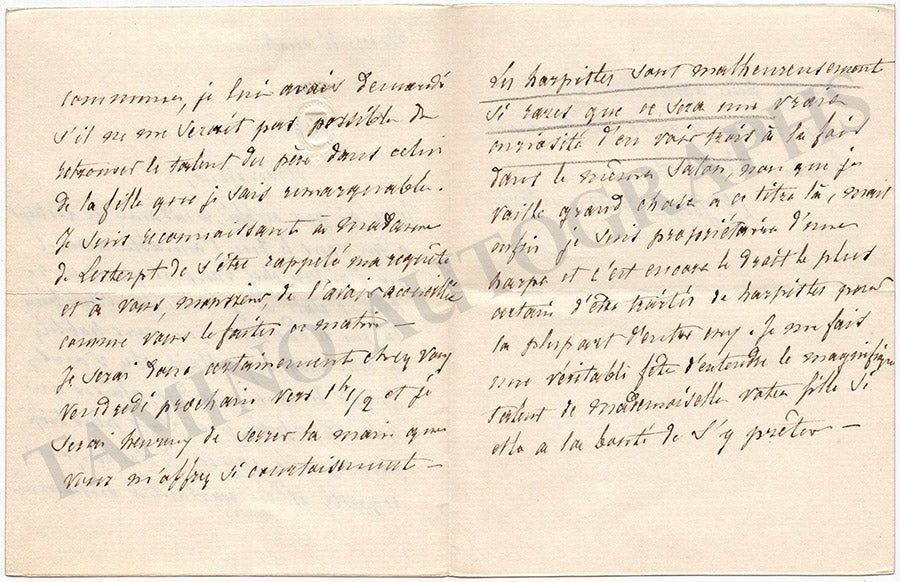 communes, je lui avais demandé
s'il ne me serait pas possible de
retrouver le talent du père dans celui
de la fille que je sais remarquable.
Je suis reconnaissant à madame
de Lesterpt de s'être rappelé ma requête
et à vous, monsieur de l'avoir accueillie
comme vous le faites ce matin —
Je serai donc certainement chez vous
Vendredi prochain vers 1h 1/2 et je
serai heureux de serrer la main que
vous m'offrez si courtoisement —
Les harpistes sont malheureusement
si rares que ce sera une vraie
curiosité d'en voir trois à la fois
dans le même salon, non que je
vaille grand chose à ce titre là, mais
enfin je suis propriétaire d'une
harpe et c'est encore le droit le plus
certain d'être traités de harpistes pour
la plupart d'entre eux. Je me fais
une véritable fête d'entendre le magnifique
talent de Mademoiselle votre fille si
elle a la bonté de s'y prêter —
TAMINO AUTOGRAPHS